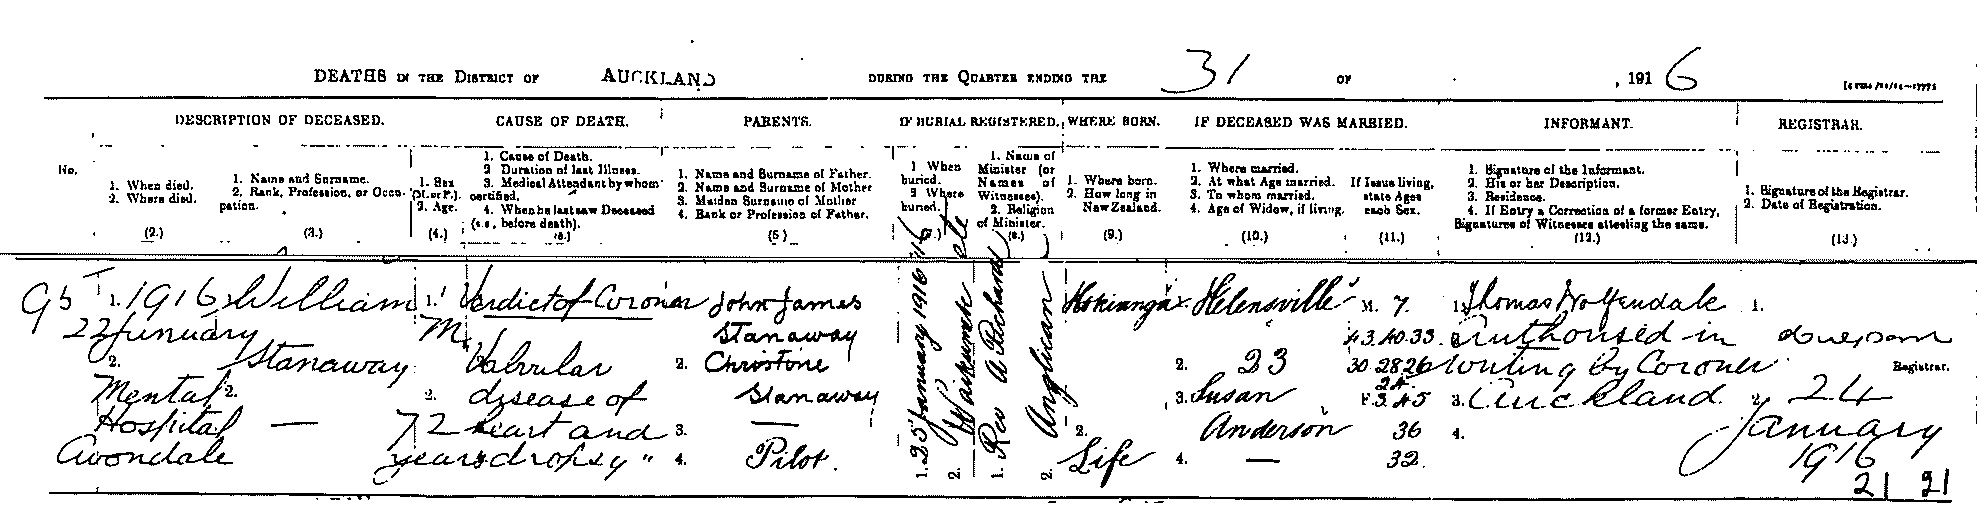 DEATHS IN THE DISTRICT OF AUCKLAND DURING THE QUARTER ENDING THE 31 OF , 1916
DESCRIPTION OF DECEASED. CAUSE OF DEATH. PARENTS. IF BURIAL REGISTERED. WHERE BORN. IF DECEASED WAS MARRIED. INFORMANT. REGISTRAR.
No.
1. When died.
2. Where died.
(2.)
1. Name and Surname.
2. Rank, Profession, or Occu-
pation.
(3.)
1. Sex
(M. or F.).
2. Age.
(4.)
1. Cause of Death.
2. Duration of last Illness.
3. Medical Attendant by whom
certified.
4. When he last saw Deceased
(i.e., before death).
1. Name and Surname of Father.
2. Name and Surname of Mother
3. Maiden Surname of Mother
4. Rank or Profession of Father.
(5.)
1. When
buried.
2. Where
buried.
(7.)
1. Name of
Minister (or
Names of
Witnesses).
2. Religion
of Minister.
(8.)
1. Where born.
2. How long in
New Zealand.
(9.)
1. Where married.
2. At what Age married.
3. To whom married.
4. Age of Widow, if living.
(10.)
If Issue living,
state Ages
each Sex.
(11.)
1. Signature of the Informant.
2. His or her Description.
3. Residence.
4. If Entry a Correction of a former Entry,
Signatures of Witnesses attesting the same.
(12.)
1. Signature of the Registrar.
2. Date of Registration.
(13.)
95
1. 1916
22 January
2.
Mental
Hospital
Avondale
William
Stanaway
2.
—
1.
M.
2.
72
years
Verdict of Coroner
Valvular
disease of
heart and
dropsy "
John James
Stanaway
2. Christine
Stanaway
3. —
4. Pilot.
1. 25 January 1916
2. Waikumete
1. Rev A
2. Anglican
Hokianga
2.
Life
1. Helensville
2. 23
3. Susan
Anderson
4. —
M. 7
43.40.33.
30.28.26
24
F. 3.45
36
32.
1. Thomas Wolfendale
2. Authorised in
writing by Coroner
3. Auckland
4.
1.
Registrar.
2. 24
January
1916
21 21